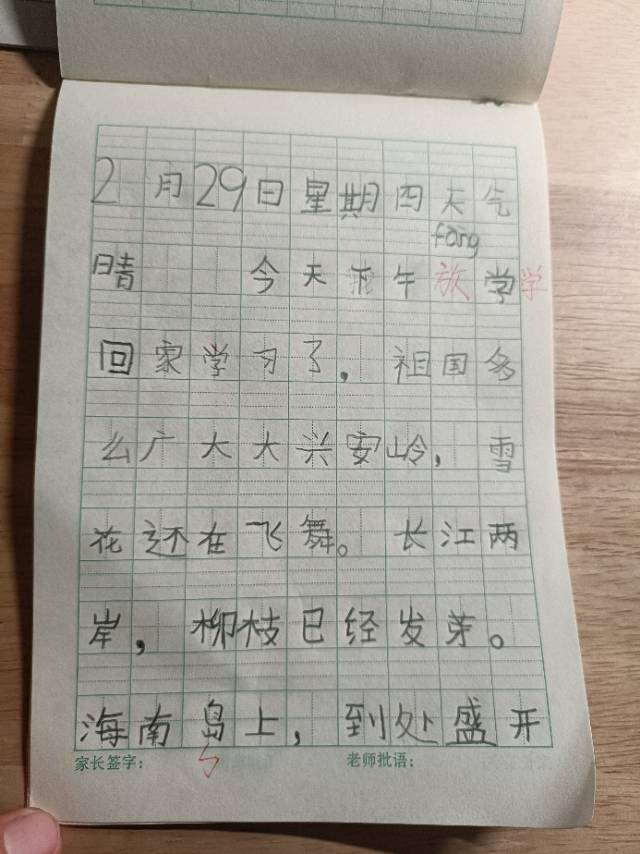 2月29日星期四天气
fàng
晴 今天下午放学学
回家学习了，祖国多
么广大大兴安岭，雪
花还在飞舞。长江两
岸，柳枝已经发芽。
海南岛上，到处盛开
家长签字： 老师批语：